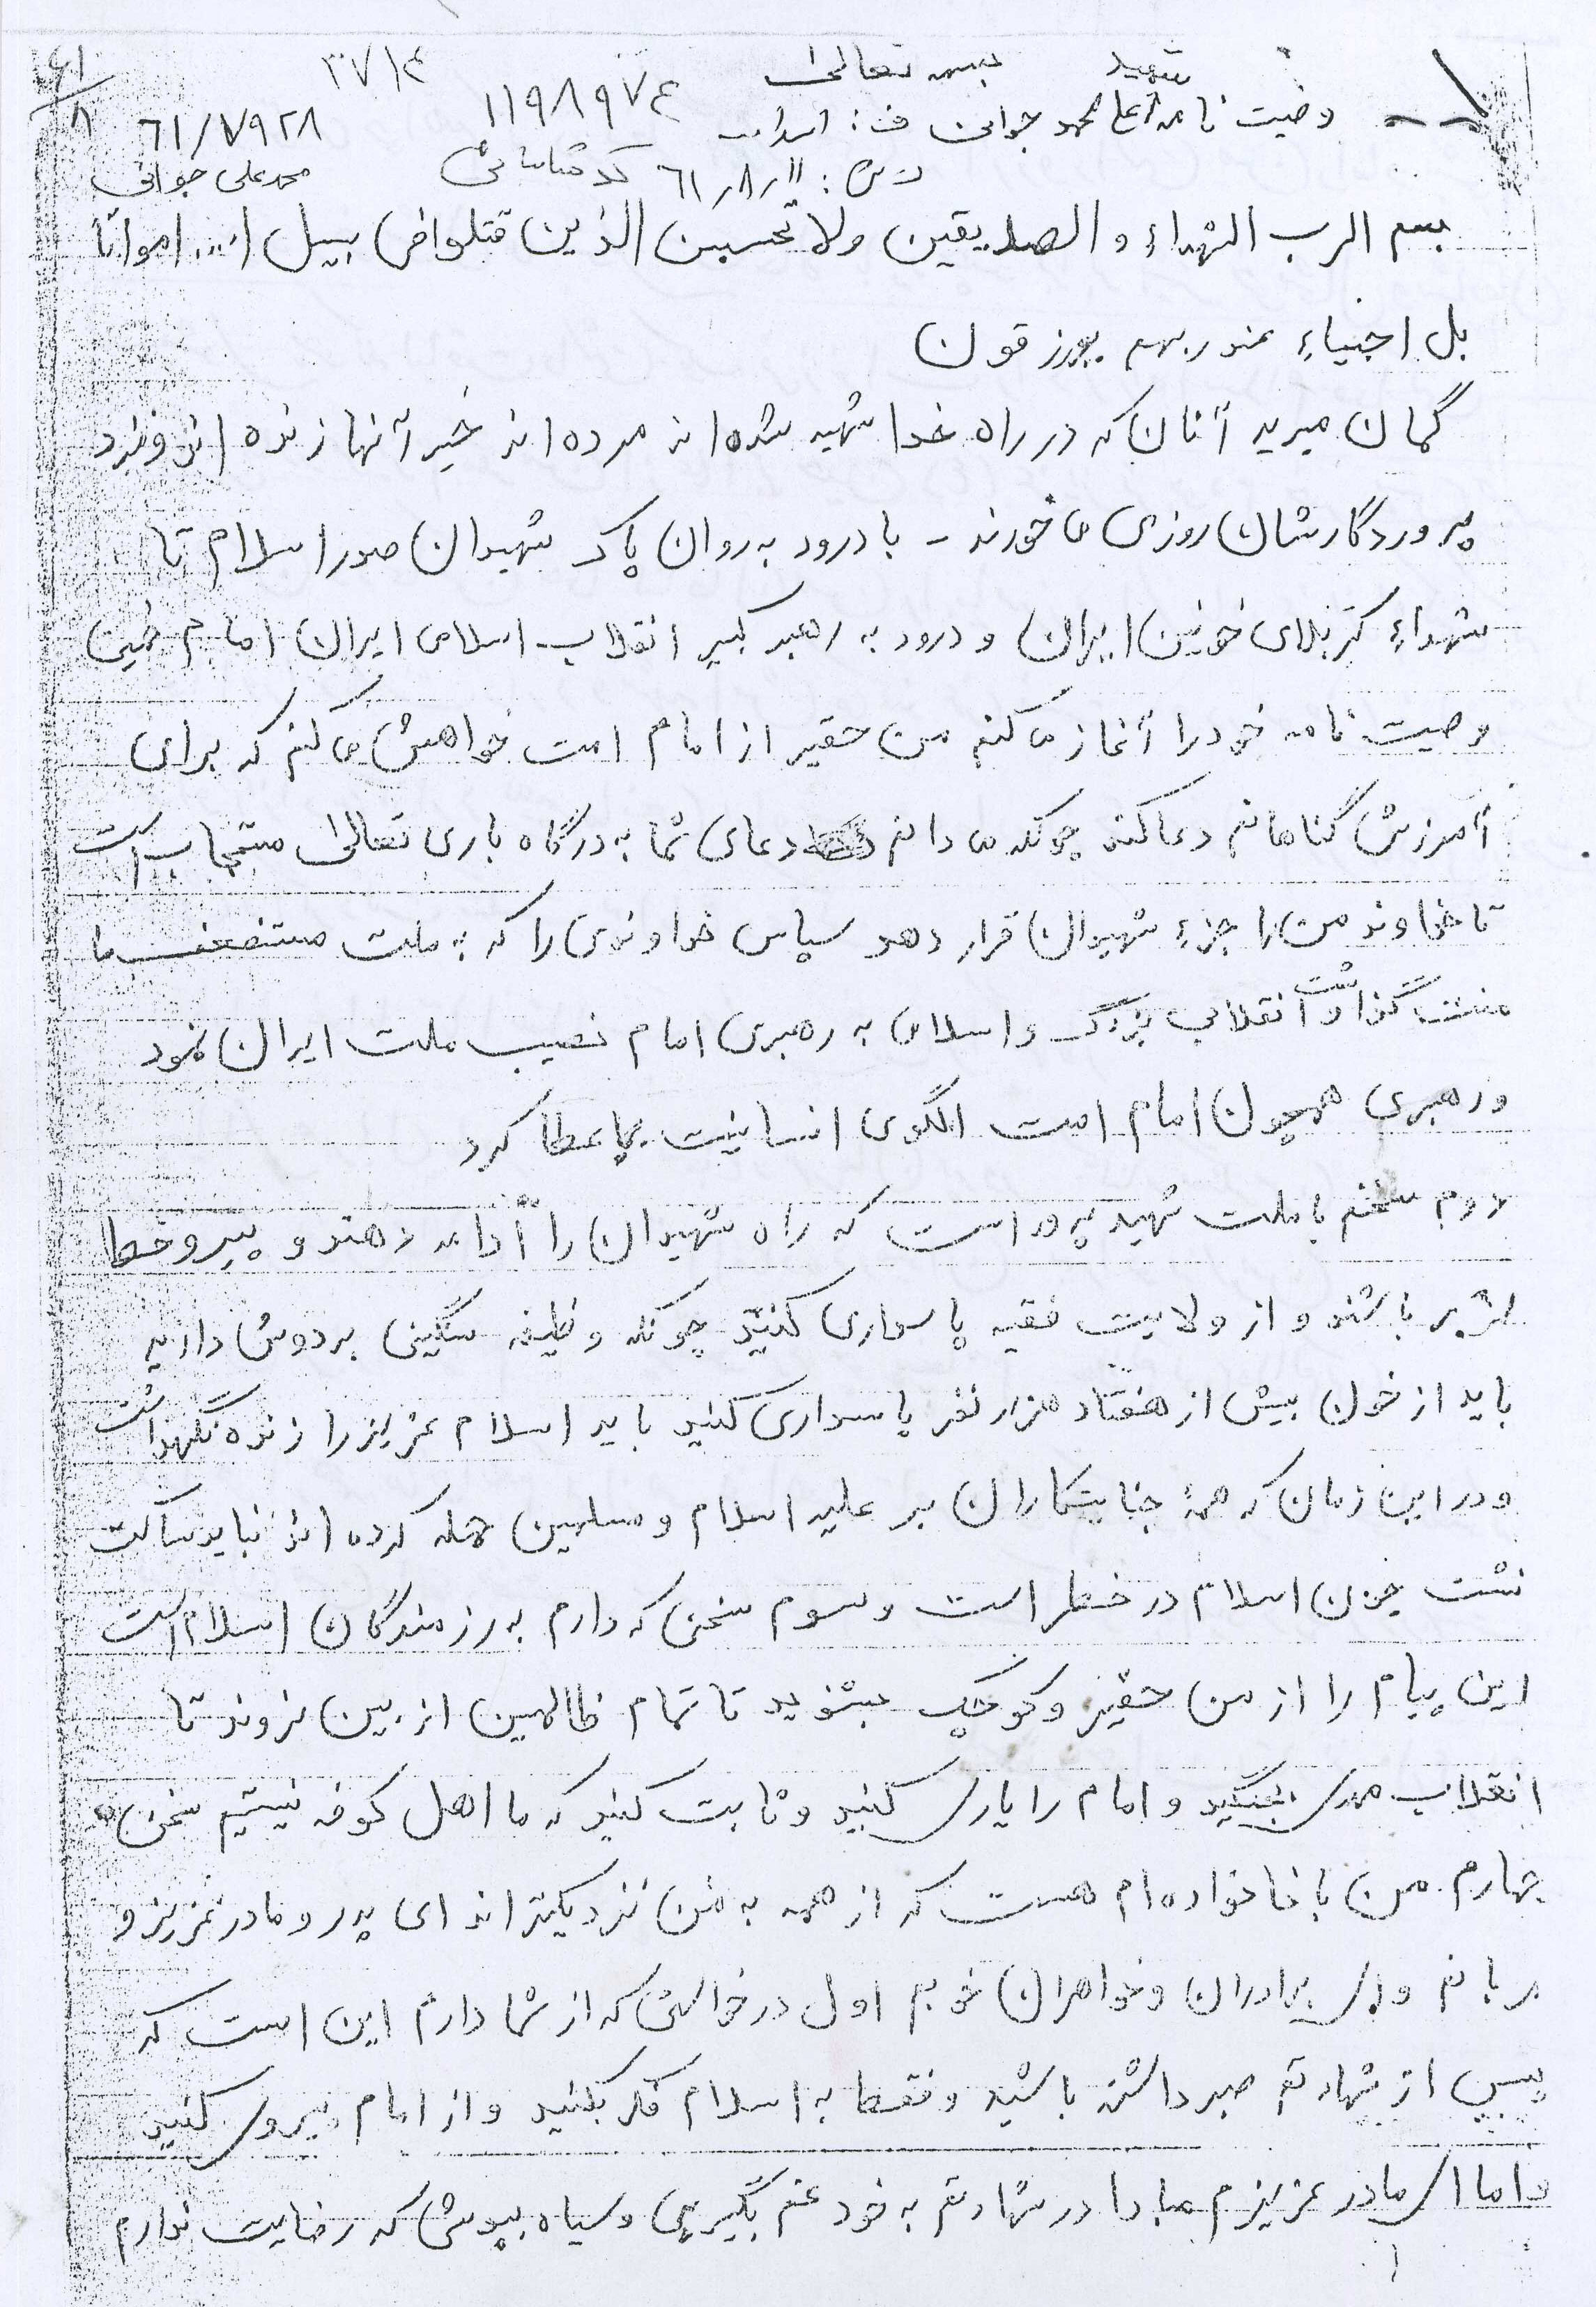 بسمه تعالی
شهید
۳۷/۴
وصیت نامه محمدعلی جوانی ف: اسداله
۱۱۹۸۹۷۴
۶۱/۷۹۲۸
ت ش: ۶۱/۸/۱۱ کد شناسائی
محمدعلی جوانی
بسم الرب الشهداء و الصدیقین ولا تحسبن الذین قتلوا فی سبیل ا... امواتاً
بل احیاء عند ربهم یورزقون
گمان مبرید آنان که در راه خدا شهید شده اند مرده اند خیر آنها زنده اند و نزد
پروردگارشان روزی می خورند - با درود به روان پاک شهیدان صدر اسلام تا
شهداء کربلای خونین ایران و درود به رهبر کبیر انقلاب اسلامی ایران امام خمینی
وصیت نامه خود را آغاز می کنم من حقیر از امام امت خواهش می کنم که برای
آمرزش گناهانم دعا کند چونکه می دانم دعای شما به درگاه باری تعالی مستجاب است
تا خداوند من را جزء شهیدان قرار دهد سپاس خداوندی را که به ملت مستضعف ما
منت گذاشت انقلابی بزرگ و اسلامی به رهبری امام نصیب ملت ایران نمود
و رهبری همچون امام امت الگوی انسانیت بما عطا کرد
دوم سخنم با ملت شهید پرور است که راه شهیدان را ادامه دهند و پیرو خط
رهبر باشند و از ولایت فقیه پاسداری کنید چونکه وظیفه سنگینی بر دوش دارید
باید از خون بیش از هفتاد هزار نفر پاسداری کنید باید اسلام عزیز را زنده نگهداشت
و در این زمان که همهٔ جنایتکاران بر علیه اسلام و مسلمین حمله کرده اند نباید ساکت
نشست چون اسلام در خطر است و سوم سخنی که دارم به رزمندگان اسلام است
این پیام را از من حقیر و کوچک بشنوید تا تمام ظالمین از بین نروند تا
انقلاب مهدی بجنگید و امام را یاری کنید و ثابت کنید که ما اهل کوفه نیستیم سخن
چهارم من با خانواده ام هست که از همه به من نزدیکتراند ای پدر و مادر عزیز و
مهربانم و ای برادران و خواهران خوبم اول درخواستی که از شما دارم این است که
پس از شهادتم صبر داشته باشید و فقط به اسلام فکر بکنید و از امام پیروی کنید
و اما ای مادر عزیزم مبادا در شهادتم به خود غم بگیری و سیاه بپوشی که رضایت ندارم
۱